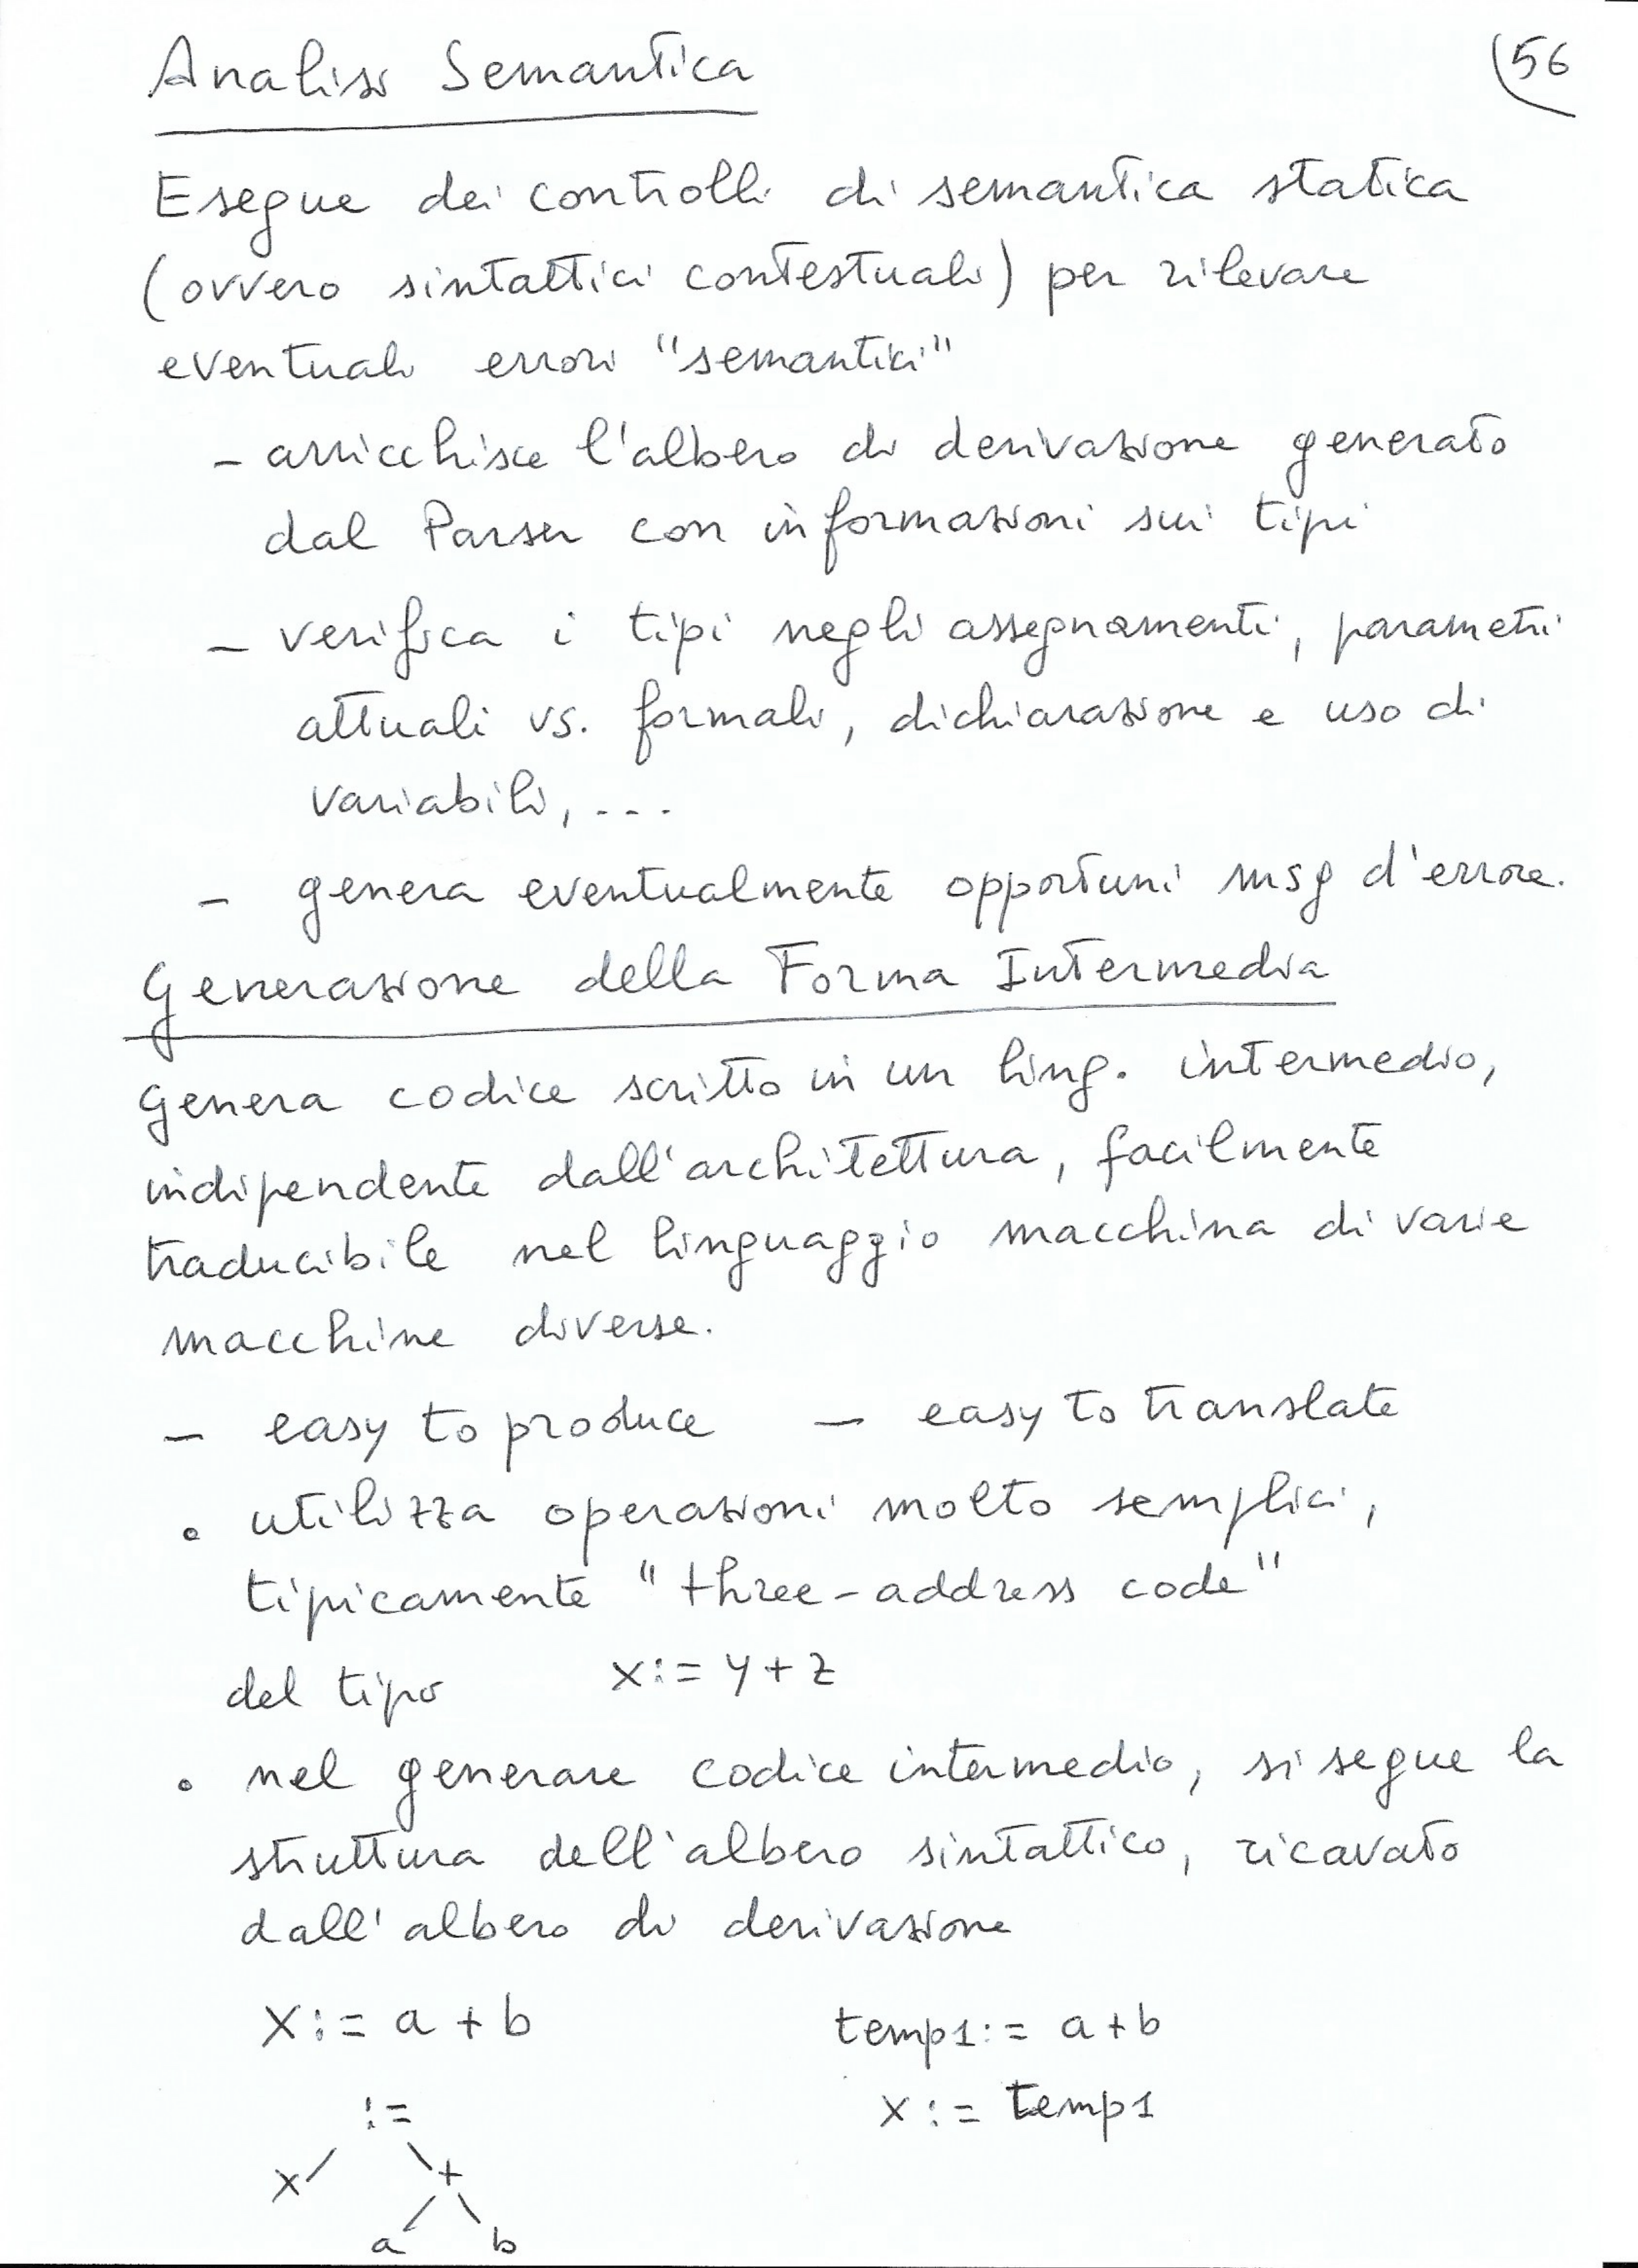 Analisi Semantica
56
Esegue dei controlli di semantica statica
(ovvero sintattici contestuali) per rilevare
eventuali errori "semantici"
- arricchisce l'albero di derivazione generato
dal Parser con informazioni sui tipi
- verifica i tipi negli assegnamenti, parametri
attuali vs. formali, dichiarazione e uso di
variabili, ...
- genera eventualmente opportuni msg d'errore.
Generazione della Forma Intermedia
Genera codice scritto in un ling. intermedio,
indipendente dall'architettura, facilmente
traducibile nel linguaggio macchina di varie
macchine diverse.
- easy to produce - easy to translate
• utilizza operazioni molto semplici,
tipicamente "three-address code"
del tipo x:= y+z
• nel generare codice intermedio, si segue la
struttura dell'albero sintattico, ricavato
dall'albero di derivazione
x:= a + b temp1:= a+b
:= x:= temp1
x +
a b